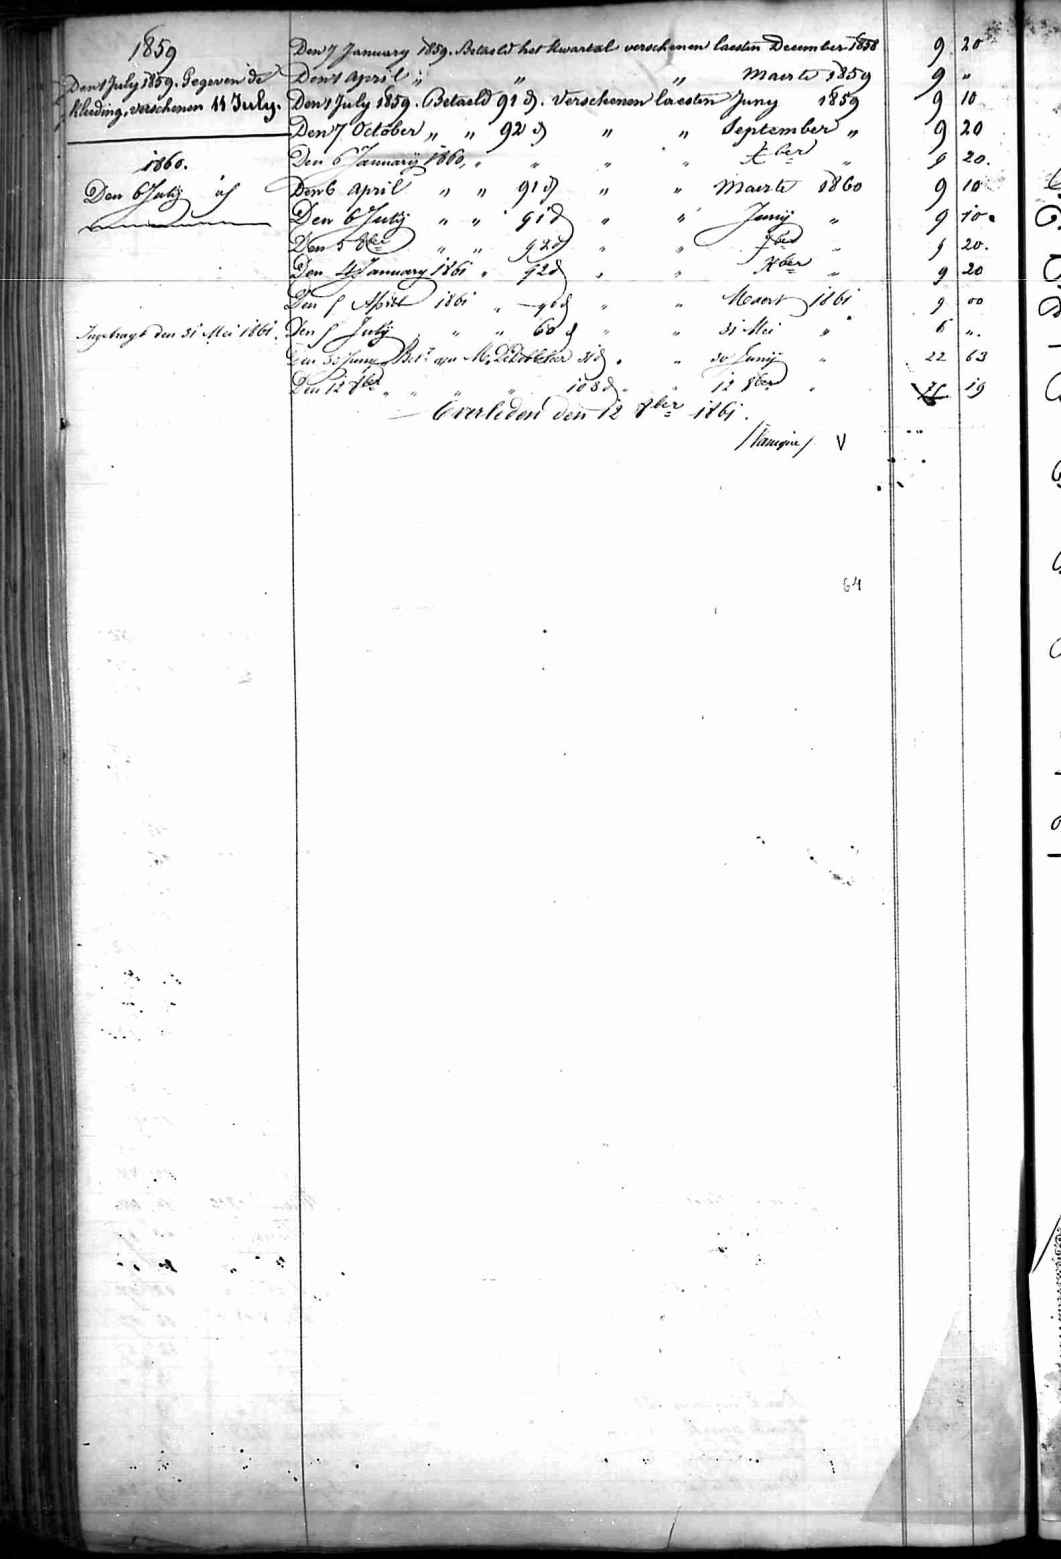 1859
Den 1 July 1859. Gegeven de
kleeding, verschenen 11 July.
1860.
Den 6 July id
Ingebragt den 31 Mei 1861.
Den 7 January 1859. Betaeld het kwartal verschenen laesten December 1858 9 20
Den 1 April " " " Maerte 1859 9 "
Den 1 July 1859. Betaeld 91 d. Verschenen laesten Juny 1859 9 10
Den 7 October " " 92 d " " September " 9 20
Den 6 Januarij 1860, " " " " xber " 9 20.
Den 6 April " " 91 d " " Maerte 1860 9 10
Den 6 July " " 91 d " " Junij " 9 10
Den 5 8ber " " 92 d " " 7ber " 9 20.
Den 4 January 1861 " 92 d " " Xber " 9 20
Den 5 April 1861 " 90 d " " Maert 1861 9 00
Den 5 July " " 60 d " " 31 Mei " 6 "
Den 30 Juny Bet. aen M. 31 d " " 30 Junij " 22 63
Den 12 8ber " " " 103 d " " 12 8ber " 75 19
Overleden den 12 8ber 1861.
V
64